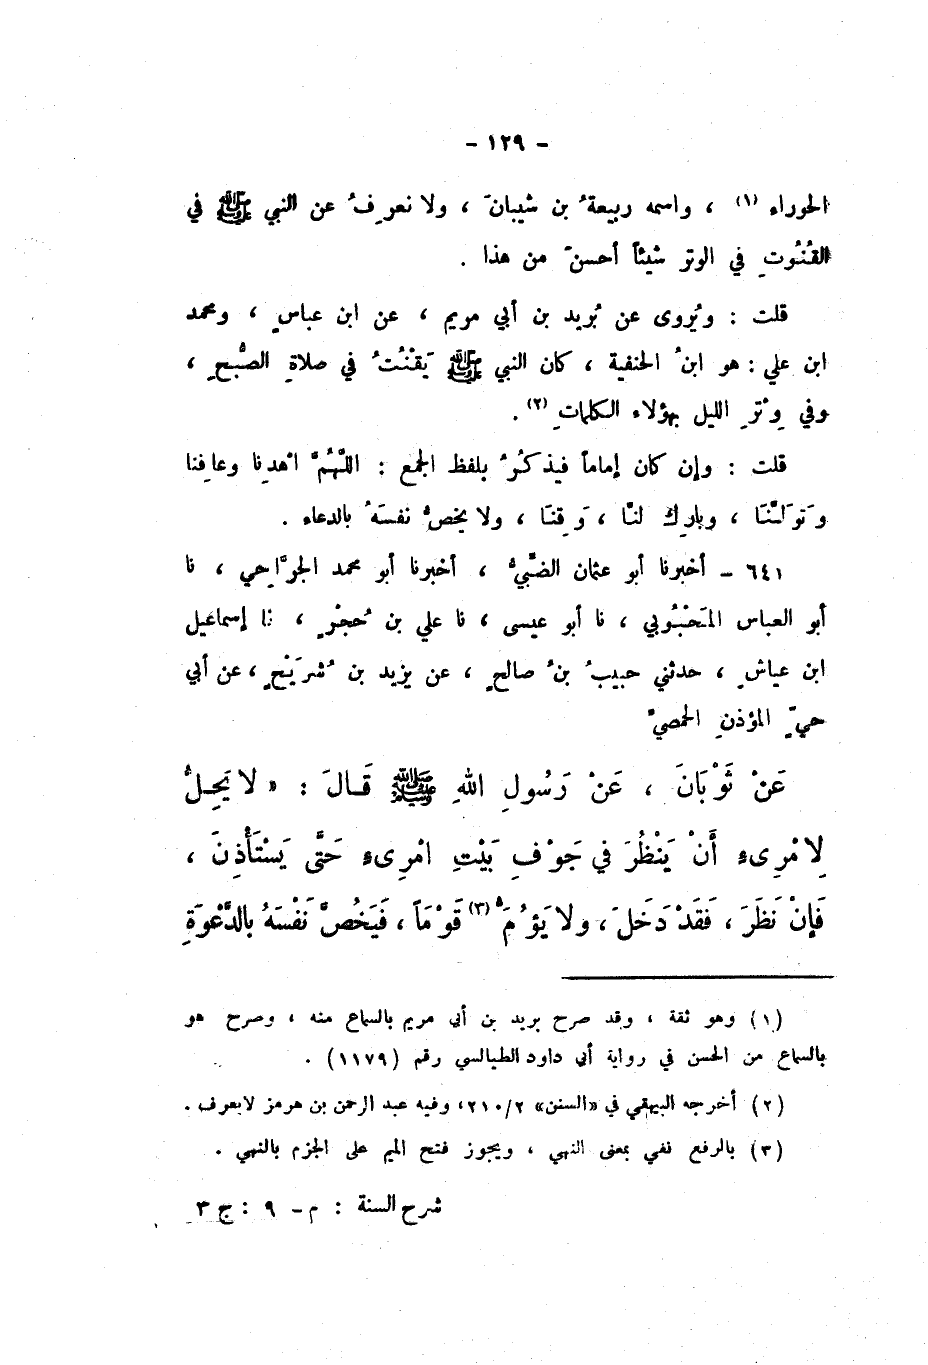 - ١٢٩ -
الحوراء (١) ، واسمه ربيعةُ بن شيبانَ ، ولا نعرِفُ عن النبي ﷺ في
القُنُوتِ في الوتر شيئاً أحسنَ من هذا .
قلت : ويُروى عن بُريد بن أبي مريم ، عن ابن عباسٍ ، ومحمد
ابن علي : هو ابنُ الحنفية ، كان النبي ﷺ يَقْنُتُ في صلاةِ الصُّبحِ ،
وفي وِتْرِ الليل بهؤلاء الكلماتِ (٢) .
قلت : وإن كان إماماً فيذكُرُ بلفظ الجمع : اللَّهُمَّ اهدِنا وعافنا
وتَوَلَّنَا ، وبارِك لنَا ، وَقِنَا ، ولا يخصُّ نفسَهُ بالدعاء .
٦٤١ - أخبرنا أبو عثمان الضَّبيُّ ، أخبرنا أبو محمد الجرَّاحي ، نا
أبو العباس المَحْبُوبي ، نا أبو عيسى ، نا علي بن حُجْرٍ ، نا إسماعيل
ابن عياشٍ ، حدثني حبيبُ بنُ صالحٍ ، عن يزيد بن شُرَيْحٍ ، عن أبي
حيٍّ المؤذنِ الحمصيّ
عَنْ ثَوْبَانَ ، عَنْ رَسُولِ اللهِ ﷺ قَالَ : « لا يَحِلُّ
لِامْرِىءٍ أَنْ يَنْظُرَ في جَوْفِ بَيْتِ امْرِىءٍ حَتَّى يَسْتَأْذِنَ ،
فَإنْ نَظَرَ ، فَقَدْ دَخَلَ ، ولا يَؤُمَُّ (٣) قَوْمَاً ، فَيَخُصَّ نَفْسَهُ بالدَّعْوَةِ
(١) وهو ثقة ، وقد صرح بريد بن أبي مريم بالسماع منه ، وصرح هو
بالسماع من الحسن في رواية أبي داود الطيالسي رقم (١١٧٩) .
(٢) أخرجه البيهقي في «السنن» ٢١٠/٢، وفيه عبد الرحمن بن هرمز لايعرف .
(٣) بالرفع نفي بمعنى النهي ، ويجوز فتح الميم على الجزم بالنهي .
شرح السنة : م - ٩ : ج ٣